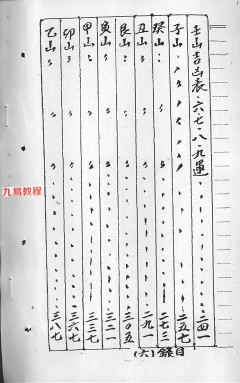 壬山吉凶表·六·七·八·九運··········二四一
子山··········二五七
癸山··········二七三
丑山··········二九一
艮山··········三〇五
寅山··········三二一
甲山··········三三七
卯山··········三六七
乙山··········三八七
目錄(六)
九易教程